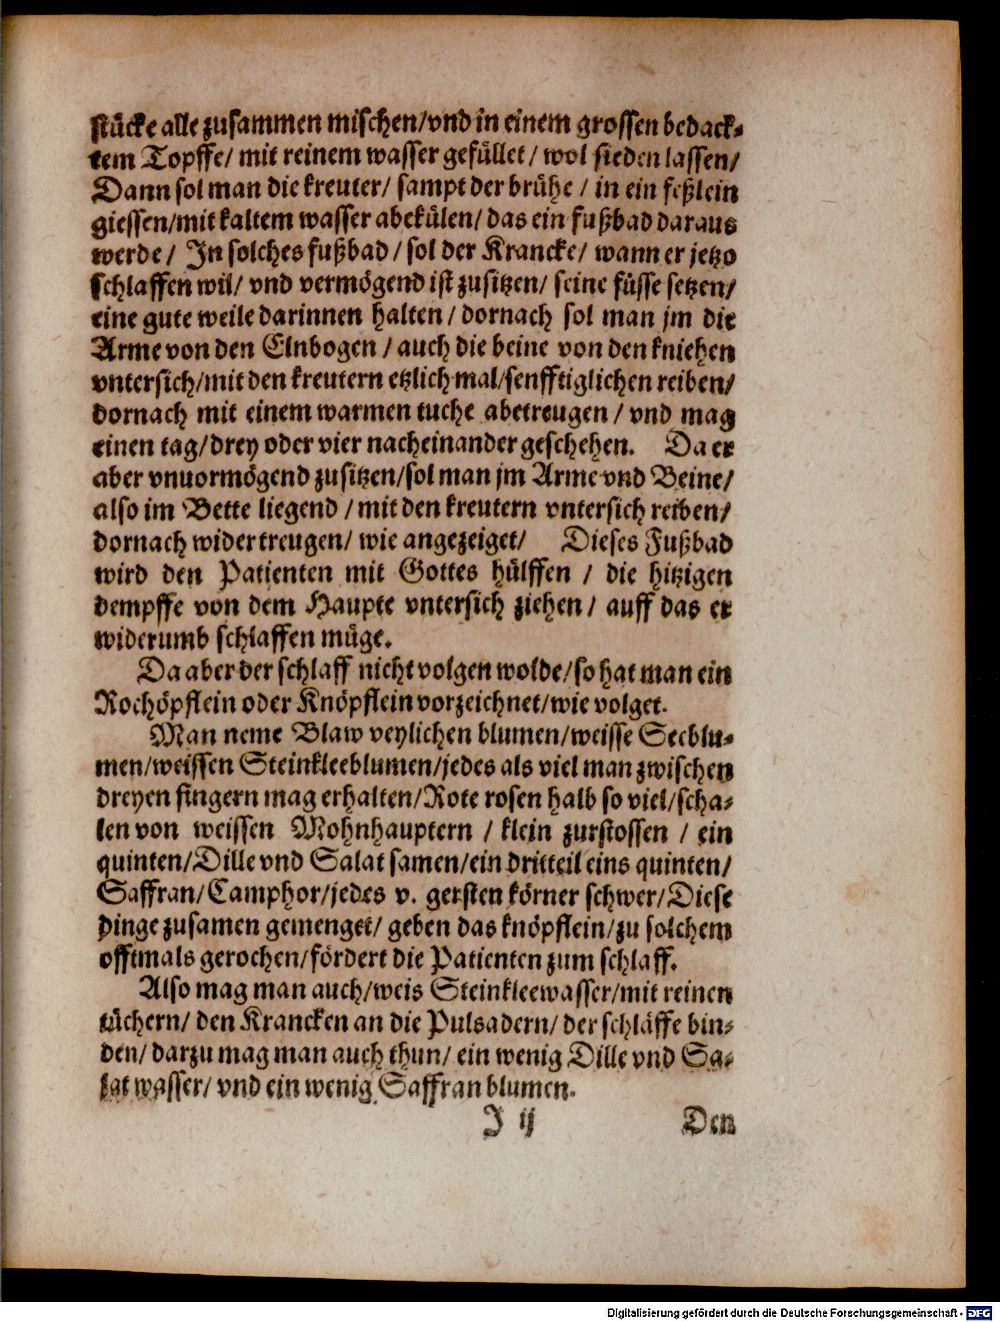 stücke alle zusammen mischen/vnd in einem grossen bedack-
tem Topffe/ mit reinem wasser gefüllet/ wol sieden lassen/
Dann sol man die kreuter/ sampt der brühe / in ein feßlein
giessen/mit kaltem wasser abekülen/ das ein fußbad daraus
werde / In solches fußbad / sol der Krancke/ wann er jetzo
schlaffen wil/ vnd vermögend ist zusitzen/ seine füsse setzen/
eine gute weile darinnen halten / dornach sol man jm die
Arme von den Elnbogen / auch die beine von den kniehen
vntersich/mit den kreutern etzlich mal/senfftiglichen reiben/
dornach mit einem warmen tuche abetreugen / vnd mag
einen tag/drey oder vier nacheinander geschehen. Da er
aber vnuormögend zusitzen/sol man jm Arme vnd Beine/
also im Bette liegend / mit den kreutern vntersich reiben/
dornach wider treugen/ wie angezeiget/ Dieses Fußbad
wird den Patienten mit Gottes hülffen / die hitzigen
dempffe von dem Haupte vntersich ziehen / auff das er
widerumb schlaffen müge.
Da aber der schlaff nicht volgen wolde/so hat man ein
Rochöpflein oder Knöpflein vorzeichnet/wie volget.
Man neme Blaw veylichen blumen/weisse Seeblu-
men/weissen Steinkleeblumen/jedes als viel man zwischen
dreyen fingern mag erhalten/Rote rosen halb so viel/scha-
len von weissen Mohnhauptern / klein zurstossen / ein
quinten/Dille vnd Salat samen/ein dritteil eins quinten/
Saffran/Camphor/jedes v. gersten körner schwer/Diese
dinge zusamen gemenget/ geben das knöpflein/zu solchem
offtmals gerochen/fördert die Patienten zum schlaff.
Also mag man auch/weis Steinkleewasser/mit reinen
tüchern/ den Krancken an die Pulsadern/ der schläffe bin-
den/ darzu mag man auch thun/ ein wenig Dille vnd Sa-
lat wasser/ vnd ein wenig Saffran blumen.
J ij Den
Digitalisierung gefördert durch die Deutsche Forschungsgemeinschaft - DFG